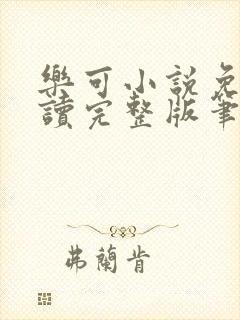 樂可小說免
讀完整版筆
弗蘭肯